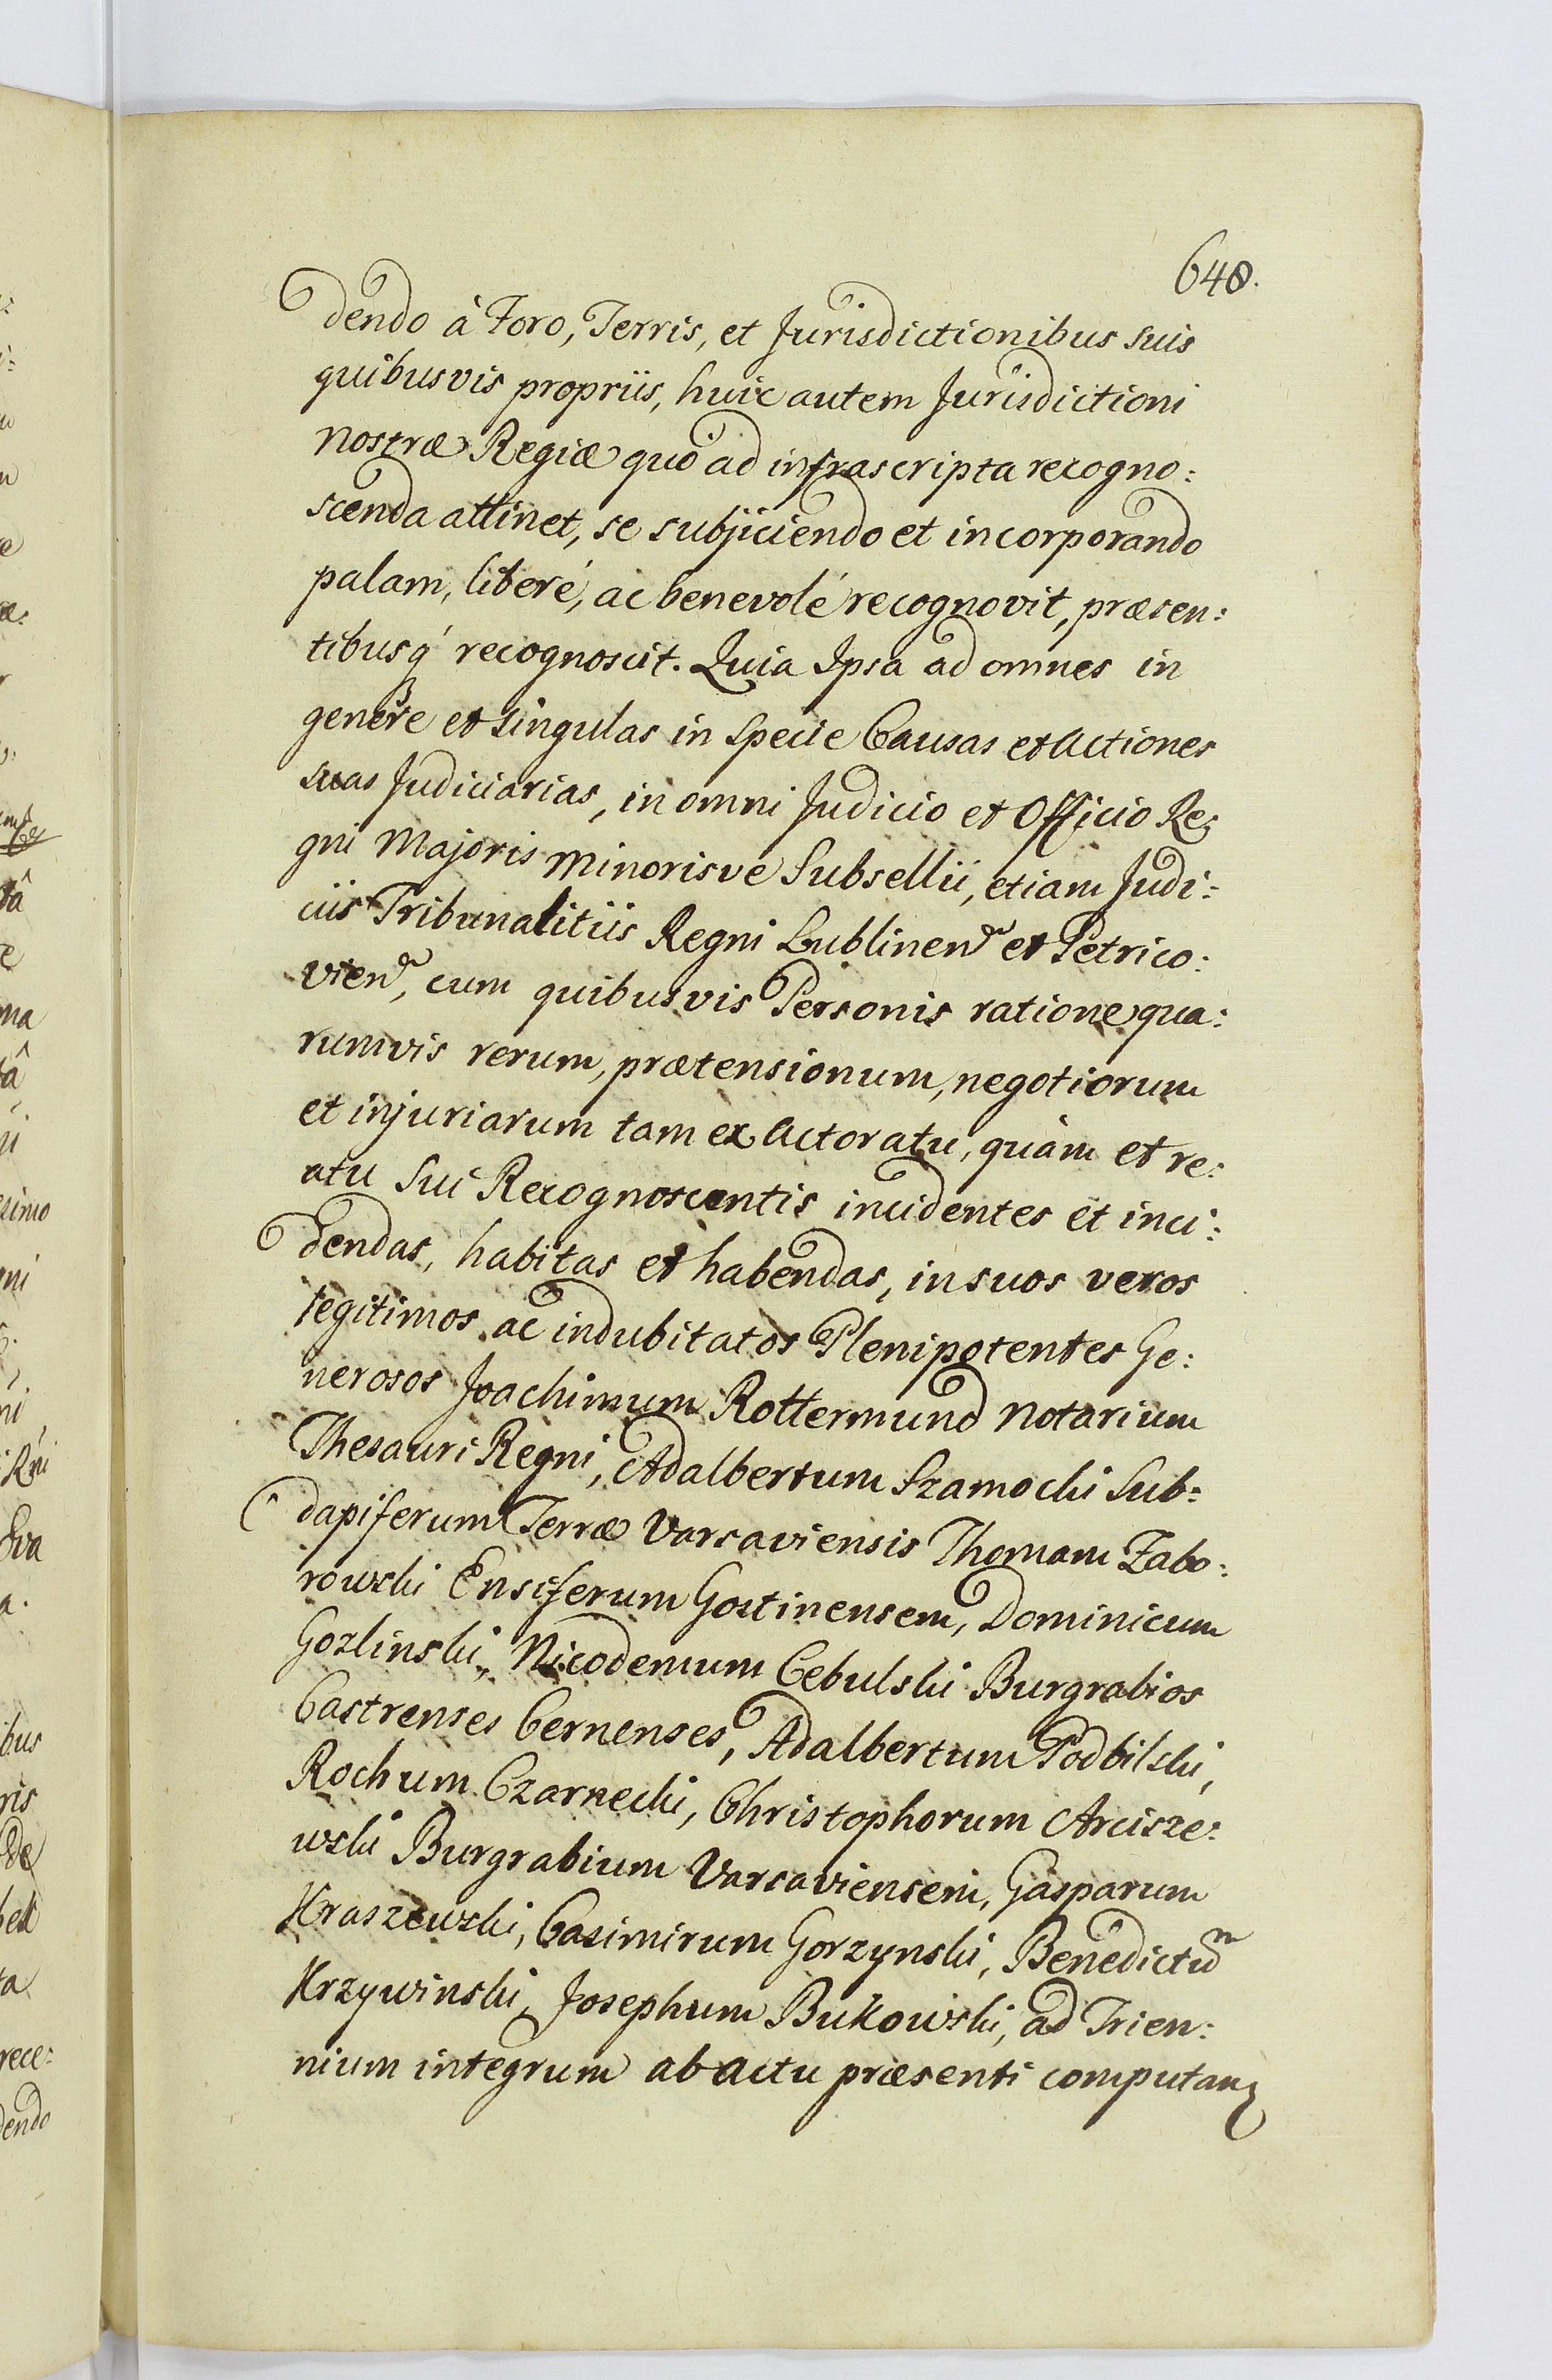 640.
dendo à Foro, Terris, et Jurisdictionibus suis
quibusvis propriis, huic autem Jurisdictioni
nostræ Regiæ quò ad infrascripta recogno:
scenda attinet, se subjiciendo et incorporando
palam, liberé, ac benevolé recognovit, præsen:
tibusq́ recognoscit. Quia Ipsa ad omnes in
genere et singulas in specie Causas et Actiones
suas Judiciarias, in omni Judicio et Officio Re:
gni Majoris Minorisve Subsellii, etiam Judi:
ciis Tribunalitiis Regni Lublinen et Petrico:
vien, cum quibusvis Personis ratione qua:
rumvis rerum, prætensionum, negotiorum
et injuriarum tam ex Actoratu, quàm et re:
atu Sui Recognoscentis incidentes et inci:
dendas, habitas et habendas, in suos veros
legitimos ac indubitatos Plenipotentes Ge:
nerosos Joachimum Rottermund Notarium
Thesauri Regni, Adalbertum Szamocki Sub:
dapiferum Terræ Varsaviensis Thomam Zabo:
rowski Ensiferum Gostinensem, Dominicum
Gozlinski, Nicodemum Cebulski Burgrabios
Castrenses Cernenses, Adalbertum Podbilski,
Rochum Czarnecki, Christophorum Arcisze:
wski Burgrabium Varsaviensem, Gasparum
Kraszewski, Casimirum Gorzynski, Benedictum
Krzywinski, Josephum Bukowski, ad Trien:
nium integrum ab actu præsenti computan: